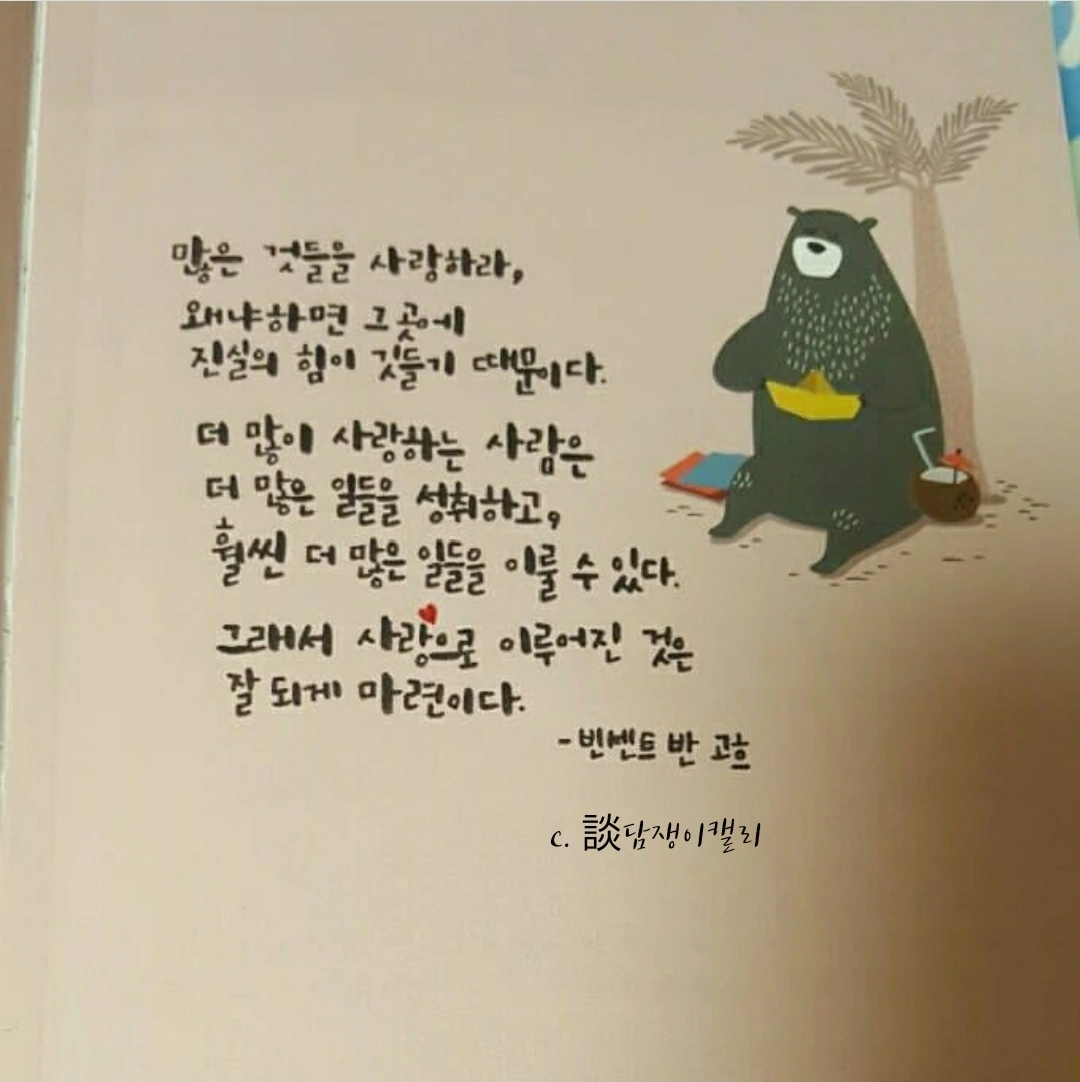 많은 것들을 사랑하라,
왜냐하면 그곳에
진실의 힘이 깃들기 때문이다.
더 많이 사랑하는 사람은
더 많은 일들을 성취하고,
훨씬 더 많은 일들을 이룰 수 있다.
그래서 사랑으로 이루어진 것은
잘 되게 마련이다.
-빈센트 반 고흐
c. 談담쟁이캘리